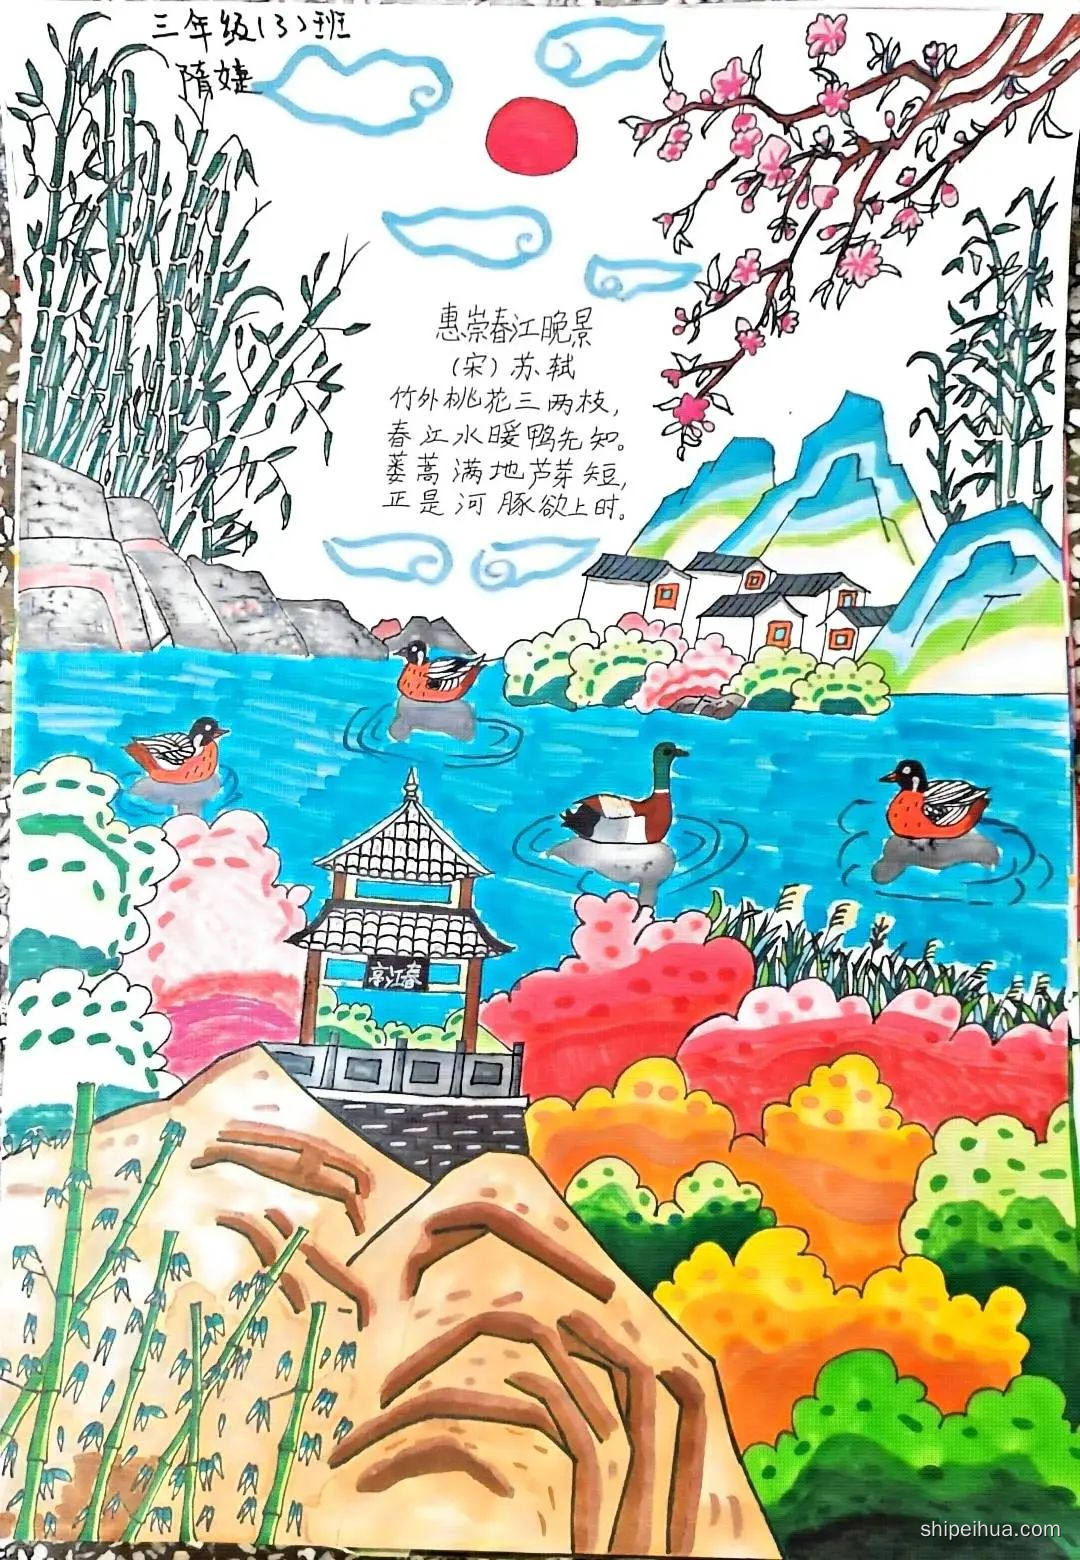 三年级(3)班
隋婕
惠崇春江晚景
(宋)苏轼
竹外桃花三两枝,
春江水暖鸭先知。
蒌蒿满地芦芽短,
正是河豚欲上时。
亭江春
shipeihua.com